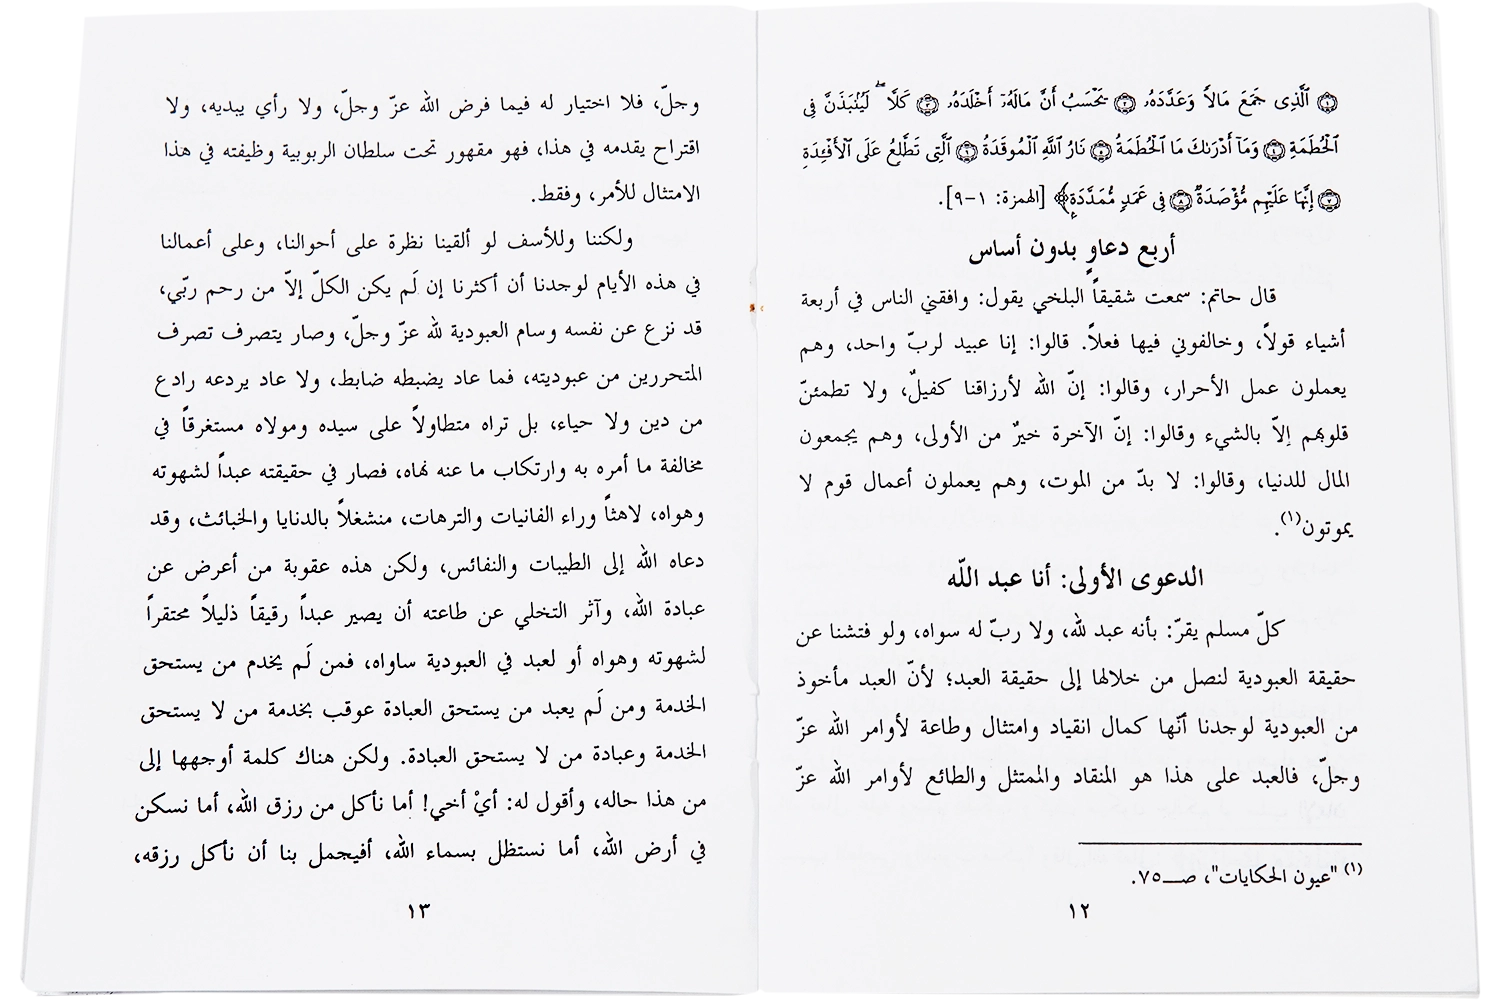 ۝١ ٱلَّذِى جَمَعَ مَالًا وَعَدَّدَهُۥ ۝٢ يَحْسَبُ أَنَّ مَالَهُۥٓ أَخْلَدَهُۥ ۝٣ كَلَّاۖ لَيُنۢبَذَنَّ فِى
ٱلْحُطَمَةِ ۝٤ وَمَآ أَدْرَىٰكَ مَا ٱلْحُطَمَةُ ۝٥ نَارُ ٱللَّهِ ٱلْمُوقَدَةُ ۝٦ ٱلَّتِى تَطَّلِعُ عَلَى ٱلْأَفْـِٔدَةِ
۝٧ إِنَّهَا عَلَيْهِم مُّؤْصَدَةٌ ۝٨ فِى عَمَدٍ مُّمَدَّدَةٍۭ﴾ [الهمزة: ١-٩].
أربع دعاوٍ بدون أساس
قال حاتم: سمعت شقيقاً البلخي يقول: وافقني الناس في أربعة
أشياء قولاً، وخالفوني فيها فعلاً. قالوا: إنا عبيد لربّ واحد، وهم
يعملون عمل الأحرار، وقالوا: إنّ الله لأرزاقنا كفيلٌ، ولا تطمئنّ
قلوبهم إلاّ بالشيء وقالوا: إنّ الآخرة خيرٌ من الأولى، وهم يجمعون
المال للدنيا، وقالوا: لا بدّ من الموت، وهم يعملون أعمال قوم لا
يموتون(١).
الدعوى الأولى: أنا عبد اللّه
كلّ مسلم يقرّ: بأنه عبد لله، ولا ربّ له سواه، ولو فتشنا عن
حقيقة العبودية لنصل من خلالها إلى حقيقة العبد؛ لأنّ العبد مأخوذ
من العبودية لوجدنا أنّها كمال انقياد وامتثال وطاعة لأوامر الله عزّ
وجلّ، فالعبد على هذا هو المنقاد والممتثل والطائع لأوامر الله عزّ
(١) "عيون الحكايات"، صـ٧٥.
١٢
وجلّ، فلا اختيار له فيما فرض الله عزّ وجلّ، ولا رأي يبديه، ولا
اقتراح يقدمه في هذا، فهو مقهور تحت سلطان الربوبية وظيفته في هذا
الامتثال للأمر، وفقط.
ولكننا وللأسف لو ألقينا نظرة على أحوالنا، وعلى أعمالنا
في هذه الأيام لوجدنا أن أكثرنا إن لَم يكن الكلّ إلاّ من رحم ربّي،
قد نزع عن نفسه وسام العبودية لله عزّ وجلّ، وصار يتصرف تصرف
المتحررين من عبوديته، فما عاد يضبطه ضابط، ولا عاد يردعه رادع
من دين ولا حياء، بل تراه متطاولاً على سيده ومولاه مستغرقاً في
مخالفة ما أمره به وارتكاب ما عنه نهاه، فصار في حقيقته عبداً لشهوته
وهواه، لاهثاً وراء الفانيات والترهات، منشغلاً بالدنايا والخبائث، وقد
دعاه الله إلى الطيبات والنفائس، ولكن هذه عقوبة من أعرض عن
عبادة الله، وآثر التخلي عن طاعته أن يصير عبداً رقيقاً ذليلاً محتقراً
لشهوته وهواه أو لعبد في العبودية ساواه، فمن لَم يخدم من يستحق
الخدمة ومن لَم يعبد من يستحق العبادة عوقب بخدمة من لا يستحق
الخدمة وعبادة من لا يستحق العبادة. ولكن هناك كلمة أوجهها إلى
من هذا حاله، وأقول له: أيْ أخي! أما نأكل من رزق الله، أما نسكن
في أرض الله، أما نستظل بسماء الله، أفيجمل بنا أن نأكل رزقه،
١٣